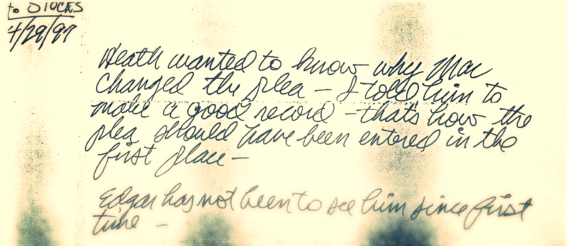 to DIUCES
4/29/97
Heath wanted to know why Mac
changed the plea – I told him to
make a good record – that's how the
plea should have been entered in the
first place –
Edgar has not been to see him since first
time –